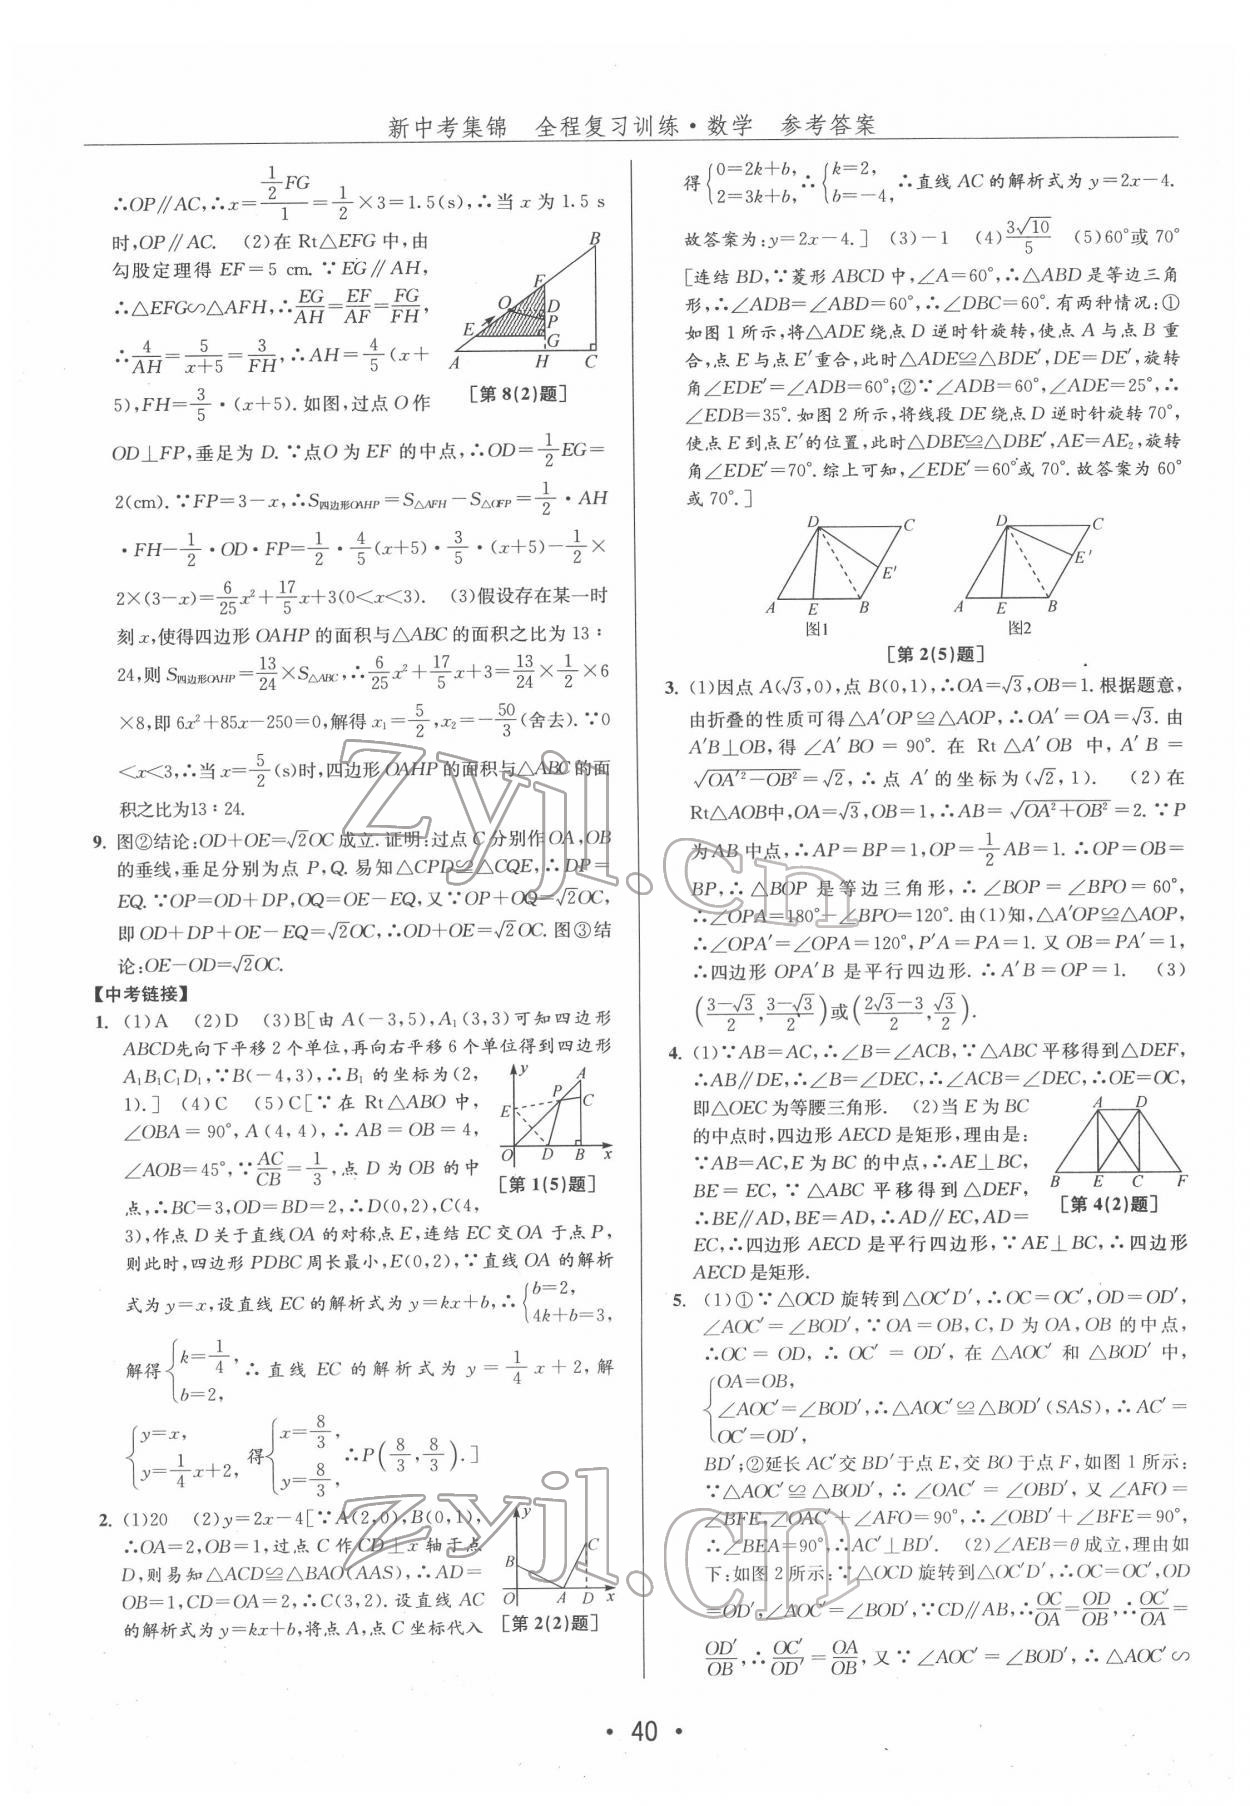 新中考集锦 全程复习训练·数学 参考答案
∴OP∥AC,∴x=(1/2 FG)/1=1/2×3=1.5(s),∴当 x 为 1.5 s
时,OP∥AC. (2)在 Rt△EFG 中,由
勾股定理得 EF=5 cm.∵EG∥AH,
∴△EFG∽△AFH,∴EG/AH=EF/AF=FG/FH,
∴4/AH=5/(x+5)=3/FH,∴AH=4/5(x+
5),FH=3/5·(x+5).如图,过点 O 作
B
F
O
D
P
E
G
A
H
C
[第 8(2)题]
OD⊥FP,垂足为 D.∵点O为 EF 的中点,∴OD=1/2EG=
2(cm).∵FP=3-x,∴S四边形OAHP=S△AFH-S△OFP=1/2·AH
·FH-1/2·OD·FP=1/2·4/5(x+5)·3/5·(x+5)-1/2×
2×(3-x)=6/25x²+17/5x+3(0<x<3). (3)假设存在某一时
刻 x,使得四边形 OAHP 的面积与△ABC 的面积之比为 13∶
24,则 S四边形OAHP=13/24×S△ABC,∴6/25x²+17/5x+3=13/24×1/2×6
×8,即 6x²+85x-250=0,解得 x₁=5/2,x₂=-50/3(舍去).∵0
<x<3,∴当 x=5/2(s)时,四边形 OAHP 的面积与△ABC 的面
积之比为13∶24.
9. 图②结论:OD+OE=√2OC 成立.证明:过点 C 分别作 OA,OB
的垂线,垂足分别为点 P,Q.易知△CPD≌△CQE,∴DP=
EQ.∵OP=OD+DP,OQ=OE-EQ,又∵OP+OQ=√2OC,
即 OD+DP+OE-EQ=√2OC,∴OD+OE=√2OC.图③结
论:OE-OD=√2OC.
【中考链接】
1. (1)A (2)D (3)B[由 A(-3,5),A₁(3,3)可知四边形
ABCD先向下平移 2 个单位,再向右平移 6 个单位得到四边形
A₁B₁C₁D₁,∵B(-4,3),∴B₁ 的坐标为(2,
1).] (4)C (5)C[∵在 Rt△ABO 中,
∠OBA=90°,A(4,4),∴AB=OB=4,
∠AOB=45°,∵AC/CB=1/3,点 D 为 OB 的中
y
A
P
C
E
O
D
B
x
[第 1(5)题]
点,∴BC=3,OD=BD=2,∴D(0,2),C(4,
3),作点 D 关于直线 OA 的对称点 E,连结 EC 交 OA 于点 P,
则此时,四边形 PDBC 周长最小,E(0,2),∵直线 OA 的解析
式为 y=x,设直线 EC 的解析式为 y=kx+b,∴{b=2, 4k+b=3,
解得{k=1/4, b=2, ∴直线 EC 的解析式为 y=1/4x+2,解
{y=x, y=1/4x+2, 得{x=8/3, y=8/3, ∴P(8/3,8/3).]
2. (1)20 (2)y=2x-4[∵A(2,0),B(0,1),
∴OA=2,OB=1,过点 C 作 CD⊥x 轴于点
D,则易知△ACD≌△BAO(AAS),∴AD=
OB=1,CD=OA=2,∴C(3,2).设直线 AC
的解析式为 y=kx+b,将点 A,点 C 坐标代入
y
C
B
O
A
D
x
[第 2(2)题]
得{0=2k+b, 2=3k+b, ∴{k=2, b=-4, ∴直线 AC 的解析式为 y=2x-4.
故答案为:y=2x-4.] (3)-1 (4)3√10/5 (5)60°或 70°
[连结 BD,∵菱形 ABCD 中,∠A=60°,∴△ABD 是等边三角
形,∴∠ADB=∠ABD=60°,∴∠DBC=60°.有两种情况:①
如图 1 所示,将△ADE 绕点 D 逆时针旋转,使点 A 与点 B 重
合,点 E 与点 E′重合,此时△ADE≌△BDE′,DE=DE′,旋转
角∠EDE′=∠ADB=60°;②∵∠ADB=60°,∠ADE=25°,∴
∠EDB=35°.如图 2 所示,将线段 DE绕点 D 逆时针旋转 70°,
使点 E 到点 E′的位置,此时△DBE≌△DBE′,AE=AE₂,旋转
角∠EDE′=70°.综上可知,∠EDE′=60°或 70°.故答案为 60°
或 70°.]
D
C
E′
A
E
B
图1
D
C
E′
A
E
B
图2
[第 2(5)题]
3. (1)因点 A(√3,0),点 B(0,1),∴OA=√3,OB=1.根据题意,
由折叠的性质可得△A′OP≌△AOP,∴OA′=OA=√3.由
A′B⊥OB,得∠A′BO=90°.在 Rt△A′OB 中,A′B=
√(OA′²-OB²)=√2,∴点 A′的坐标为(√2,1). (2)在
Rt△AOB中,OA=√3,OB=1,∴AB=√(OA²+OB²)=2.∵P
为AB 中点,∴AP=BP=1,OP=1/2AB=1.∴OP=OB=
BP,∴△BOP 是等边三角形,∴∠BOP=∠BPO=60°,
∴∠OPA=180°-∠BPO=120°.由(1)知,△A′OP≌△AOP,
∴∠OPA′=∠OPA=120°,P′A=PA=1.又 OB=PA′=1,
∴四边形 OPA′B 是平行四边形.∴A′B=OP=1. (3)
((3-√3)/2,(3-√3)/2)或((2√3-3)/2,√3/2).
4. (1)∵AB=AC,∴∠B=∠ACB,∵△ABC 平移得到△DEF,
∴AB∥DE,∴∠B=∠DEC,∴∠ACB=∠DEC,∴OE=OC,
即△OEC为等腰三角形. (2)当 E 为 BC
的中点时,四边形 AECD 是矩形,理由是:
∵AB=AC,E 为 BC 的中点,∴AE⊥BC,
BE=EC,∵△ABC 平移得到△DEF,
∴BE∥AD,BE=AD,∴AD∥EC,AD=
A
D
B
E
C
F
[第 4(2)题]
EC,∴四边形 AECD 是平行四边形,∵AE⊥BC,∴四边形
AECD 是矩形.
5. (1)①∵△OCD 旋转到△OC′D′,∴OC=OC′,OD=OD′,
∠AOC′=∠BOD′,∵OA=OB,C,D 为 OA,OB 的中点,
∴OC=OD,∴OC′=OD′,在△AOC′和△BOD′中,
{OA=OB,
∠AOC′=∠BOD′,∴△AOC′≌△BOD′(SAS),∴AC′=
OC′=OD′,
BD′;②延长 AC′交 BD′于点 E,交 BO于点 F,如图 1 所示:
∵△AOC′≌△BOD′,∴∠OAC′=∠OBD′,又∠AFO=
∠BFE,∠OAC′+∠AFO=90°,∴∠OBD′+∠BFE=90°,
∴∠BEA=90°,∴AC′⊥BD′. (2)∠AEB=θ成立,理由如
下:如图 2所示:∵△OCD 旋转到△OC′D′,∴OC=OC′,OD
=OD′,∠AOC′=∠BOD′,∵CD∥AB,∴OC/OA=OD/OB,∴OC′/OA=
OD′/OB,∴OC′/OD′=OA/OB,又∵∠AOC′=∠BOD′,∴△AOC′∽
· 40 ·
zyjl.cn
zyjl.cn